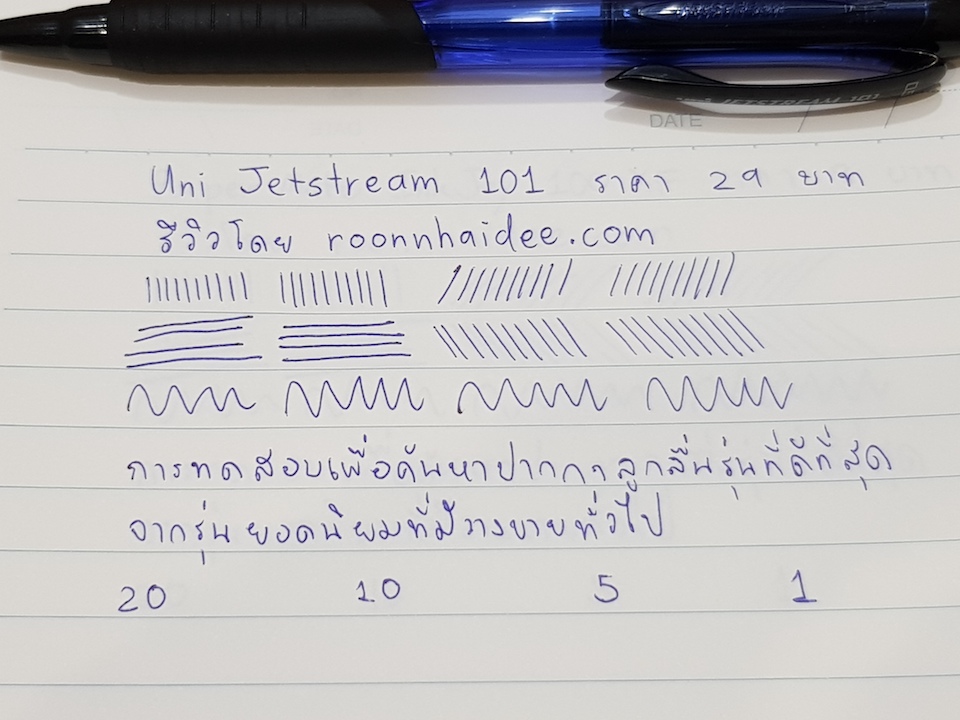 JETSTREAM 101
DATE
Uni Jetstream 101 ราคา 29 บาท
รีวิวโดย roonnhaidee.com
การทดสอบเพื่อค้นหาปากกาลูกลื่นรุ่นที่ดีที่สุด
จากรุ่นยอดนิยมที่มีวางขายทั่วไป
20 10 5 1